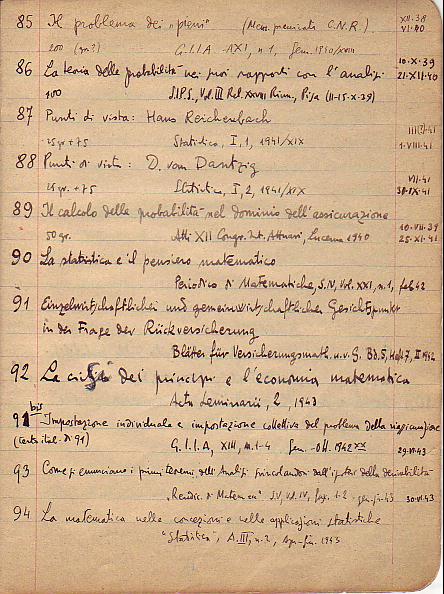 85 Il problema dei "pieni" (Mem. premiata C.N.R.) XII.38
VI.40
200 (?) G.I.I.A. A.XI, n.1, Gen. 1940/XVIII
86 La teoria delle probabilità nei suoi rapporti con l'analisi 10.X.39
21.XII.40
100 S.I.P.S., Vol. III Rel. XXVIII Riun., Pisa (11-15.X-39)
87 Punti di vista: Hans Reichenbach
25 gr. + 75 Statistica, I, 1, 1941/XIX 1.VIII.41
88 Punti di vista: D. van Dantzig VII.41
25 gr. + 75 Statistica, I, 2, 1941/XIX 30.IX.41
89 Il calcolo delle probabilità nel dominio dell'assicurazione 10.VII.39
50 gr. Atti XII Congr. Int. Attuari, Lucerna 1940 25.XI.41
90 La statistica e il pensiero matematico
Periodico di Matematiche, S.IV, Vol. XXI, n.1, feb 42
91 Einzelwirtschaftlicher und gemeinwirtschaftlicher Gesichtspunkt
in der Frage der Rückversicherung
Blätter für Versicherungsmath. u. v. G. Bd. 5, Heft 7, II 1942
92 La crisi dei principi e l'economia matematica
Acta Seminarii, 2, 1943
91 bis Impostazione individuale e impostazione collettiva del problema della riassicurazione
(Certo ital. di 91) G.I.I.A., XIII, n.1-4 Gen. - Ott. 1942 XX 29.VI.43
93 Come si enunciano i primi teoremi dell'Analisi svincolandoli dall'ipotesi della derivabilità
"Rendic. di Matem." S.V, Vol. IV, fasc. 1-2 - gen-giu 43 30.VI.43
94 La matematica nelle concezioni e nelle applicazioni statistiche
"Statistica", A. III, n.2, Apr-giu. 1943